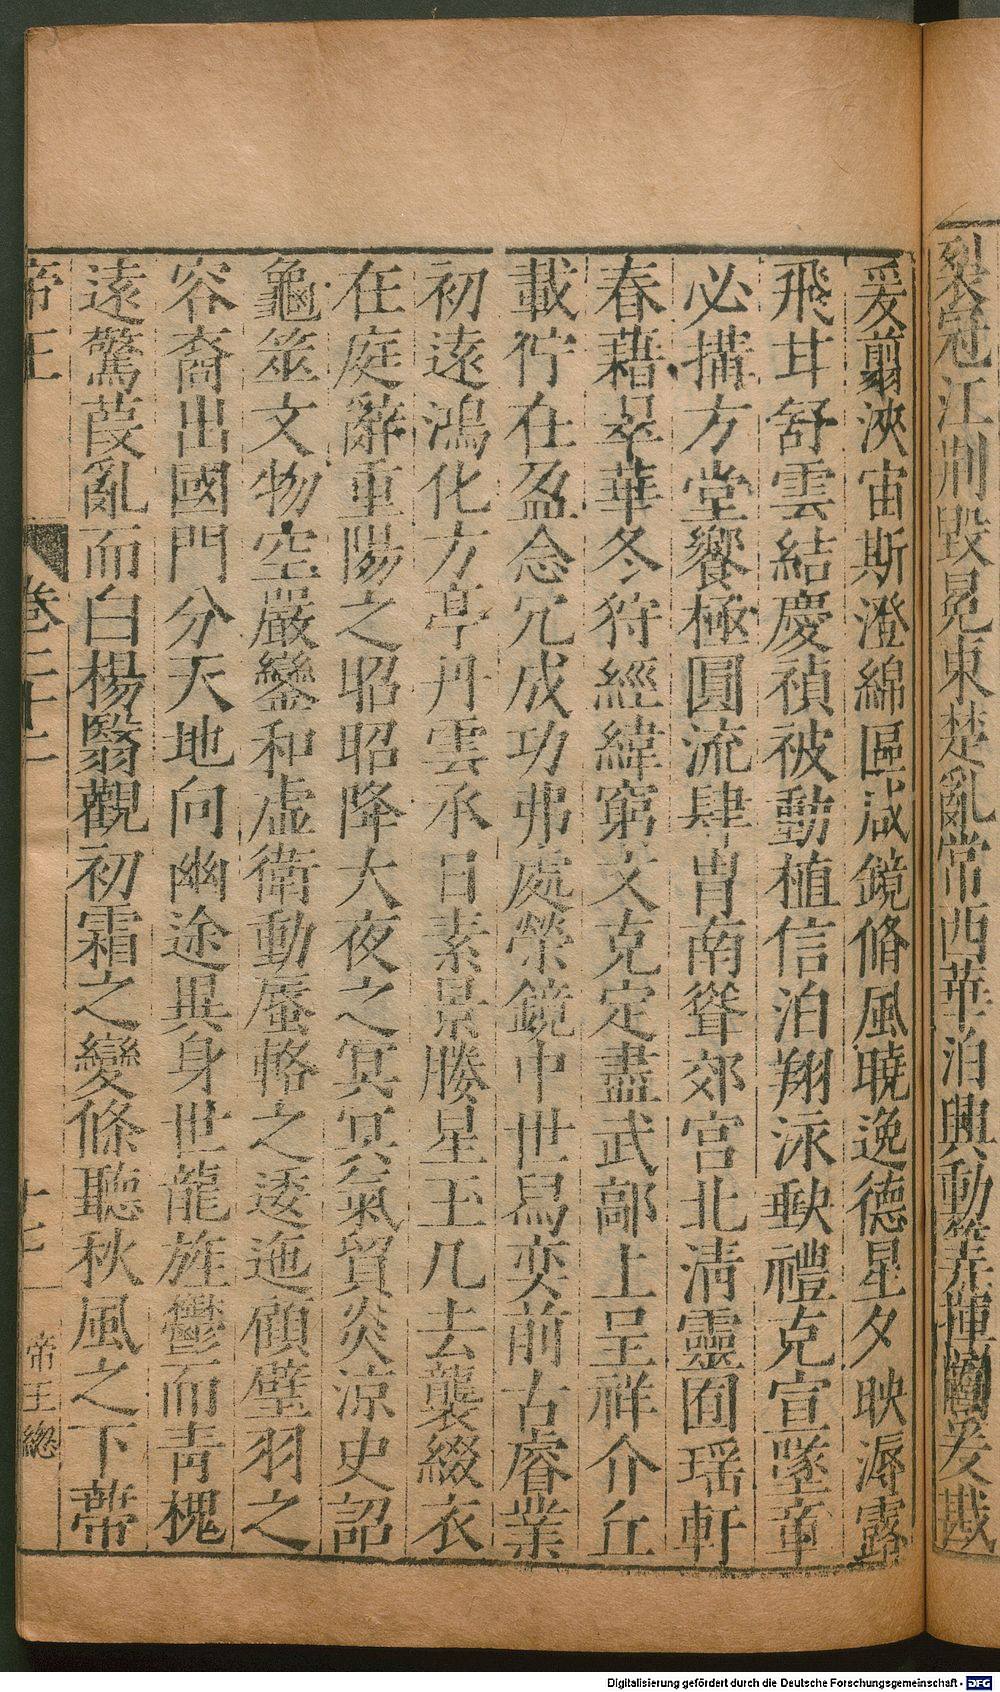 裂冠江荆毀冕東楚亂常西華泊興動筭揮麾爰戡
爰翦浹宙斯澄綿區咸鏡脩風曉逸德星夕映溽露
飛甘舒雲結慶禎被動植信泊翔泳䡖禮克宣墜章
必搆方堂饗極圓流肆胄南聳郊宮北清靈囿瑶軒
春藉翠華冬狩經緯窮文克定盡武鄗上呈祥介丘
載佇在盈念冗成功弗處榮鏡中世舄奕前古睿業
初遠鴻化方亭丹雲承日素景媵星玉几去襲綴衣
在庭辭重陽之昭昭降大夜之冥冥氣貿炎涼史詔
龜筮文物空嚴鑾和虛衛動蜃輅之逶迤顧壁羽之
容裔出國門分天地向幽途異身世龍旌鬱而靑槐
遠驚葭亂而白楊翳觀初霜之變條聽秋風之下蔕
帝王 卷之十三 十七 帝王總
Digitalisierung gefördert durch die Deutsche Forschungsgemeinschaft - DFG